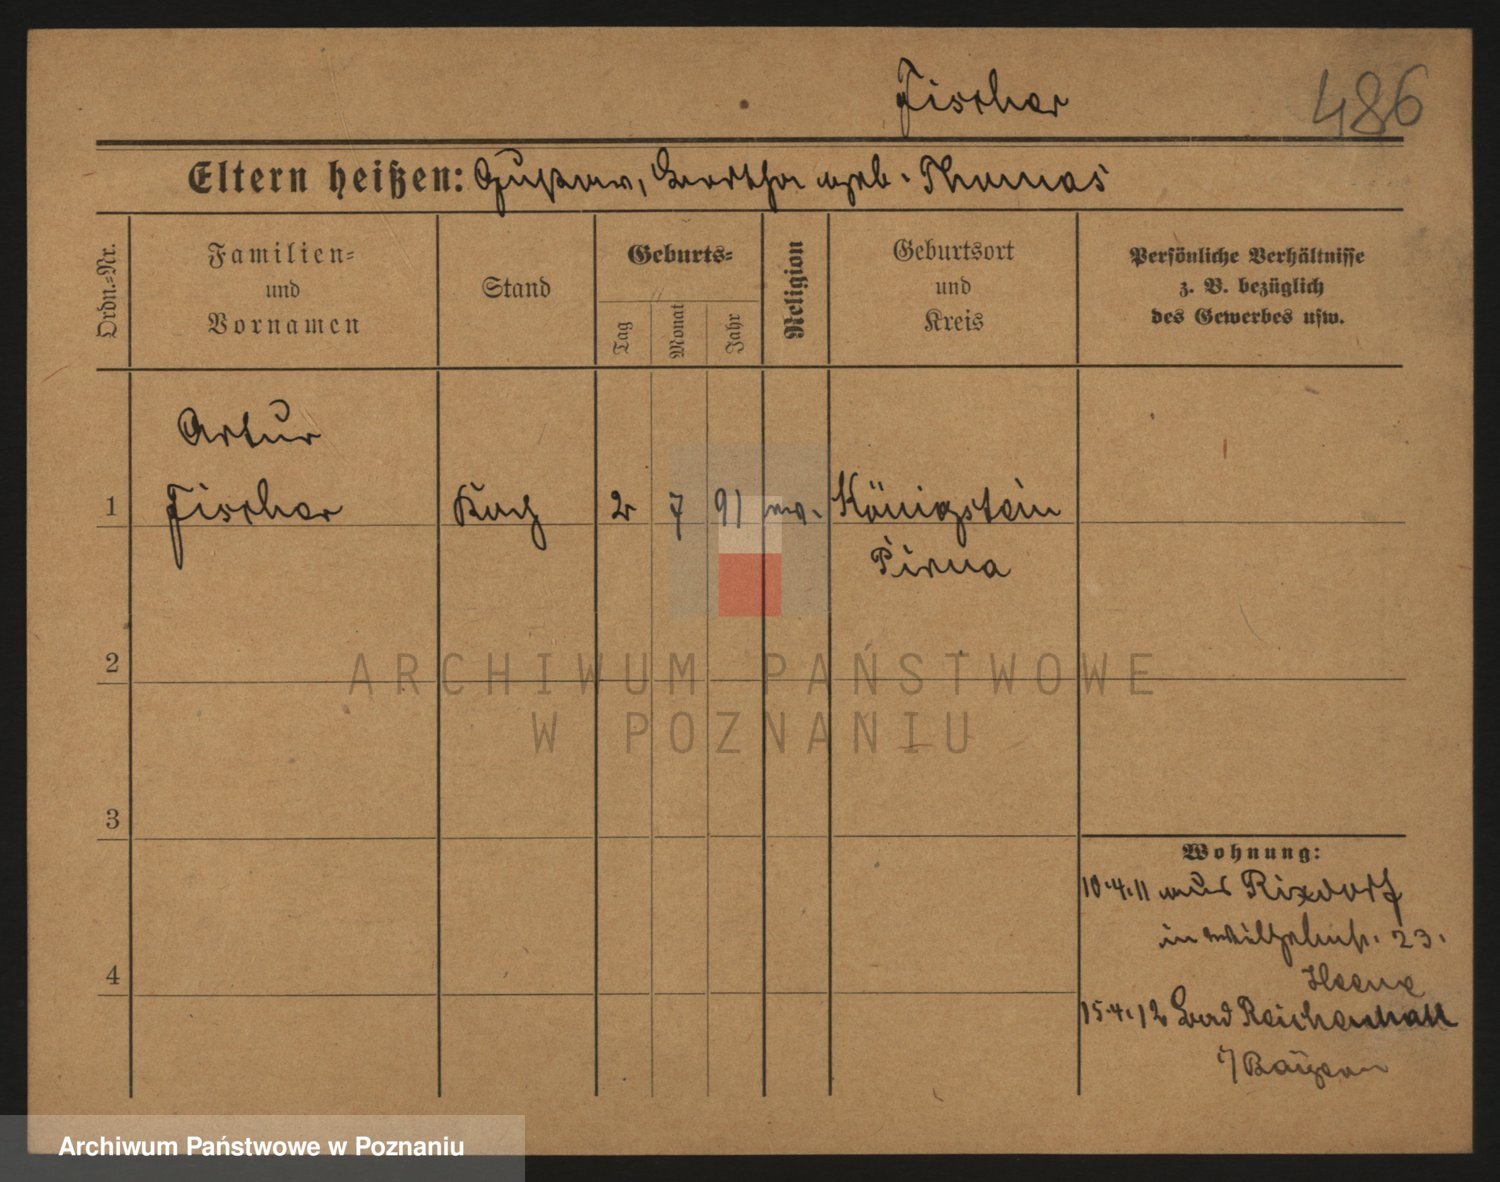 Fischer
486
Eltern heißen: Gustav, Bertha geb. Thomas
Ordn.-Nr.
Familien-
und
Vornamen
Stand
Geburts-
Tag
Monat
Jahr
Religion
Geburtsort
und
Kreis
Persönliche Verhältnisse
z. B. bezüglich
des Gewerbes usw.
Artur
1 Fischer Koch 2 7 91 ev. Königstein
Pirna
2
ARCHIWUM PAŃSTWOWE
W POZNANIU
3
Wohnung:
10.4.11 aus Rixdorf
in Wilhelmst. 23.
4
15.4.12 Bad Reichenhall
i/Bayern
Archiwum Państwowe w Poznaniu